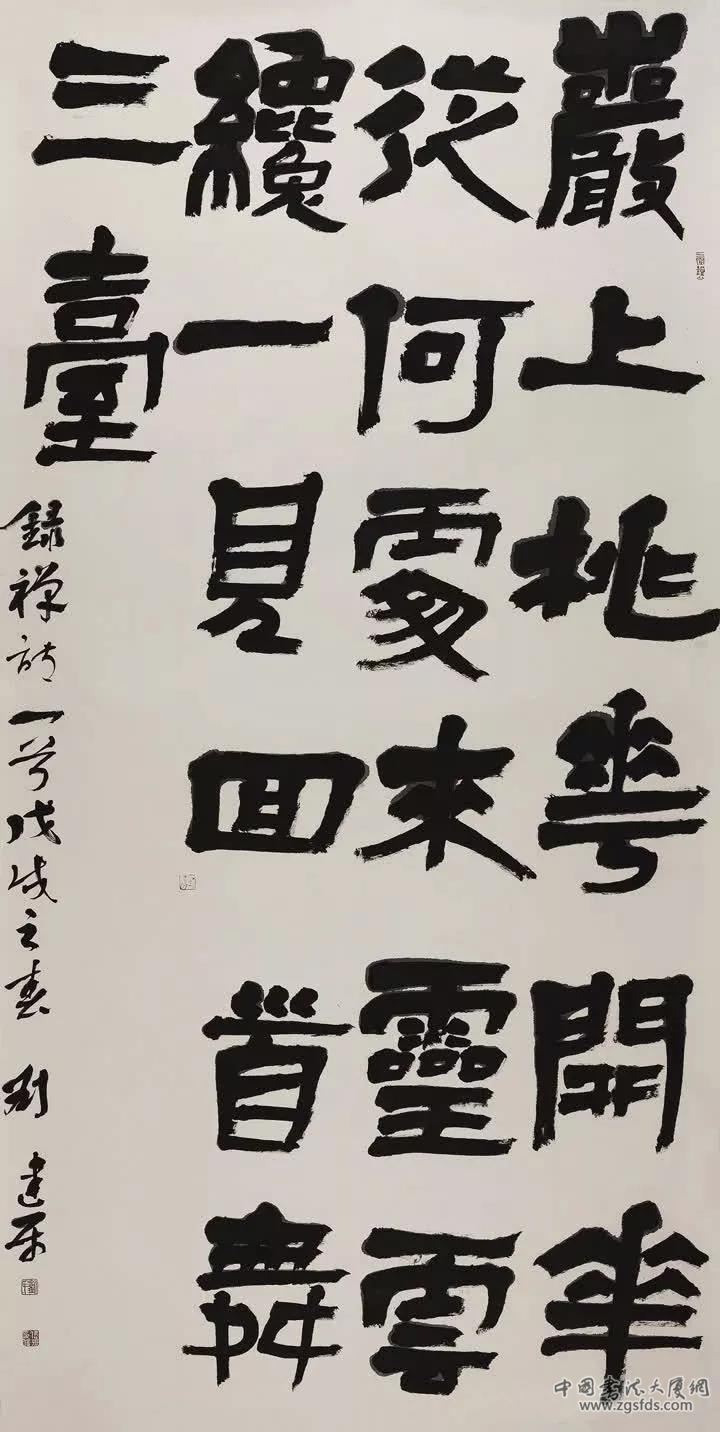 巖上桃華開華
從何處來靈雲
纔一見回首舞
三臺
錄禪詩一首戊戌之春 劉建平
中國書法大廈網
www.zgsfds.com